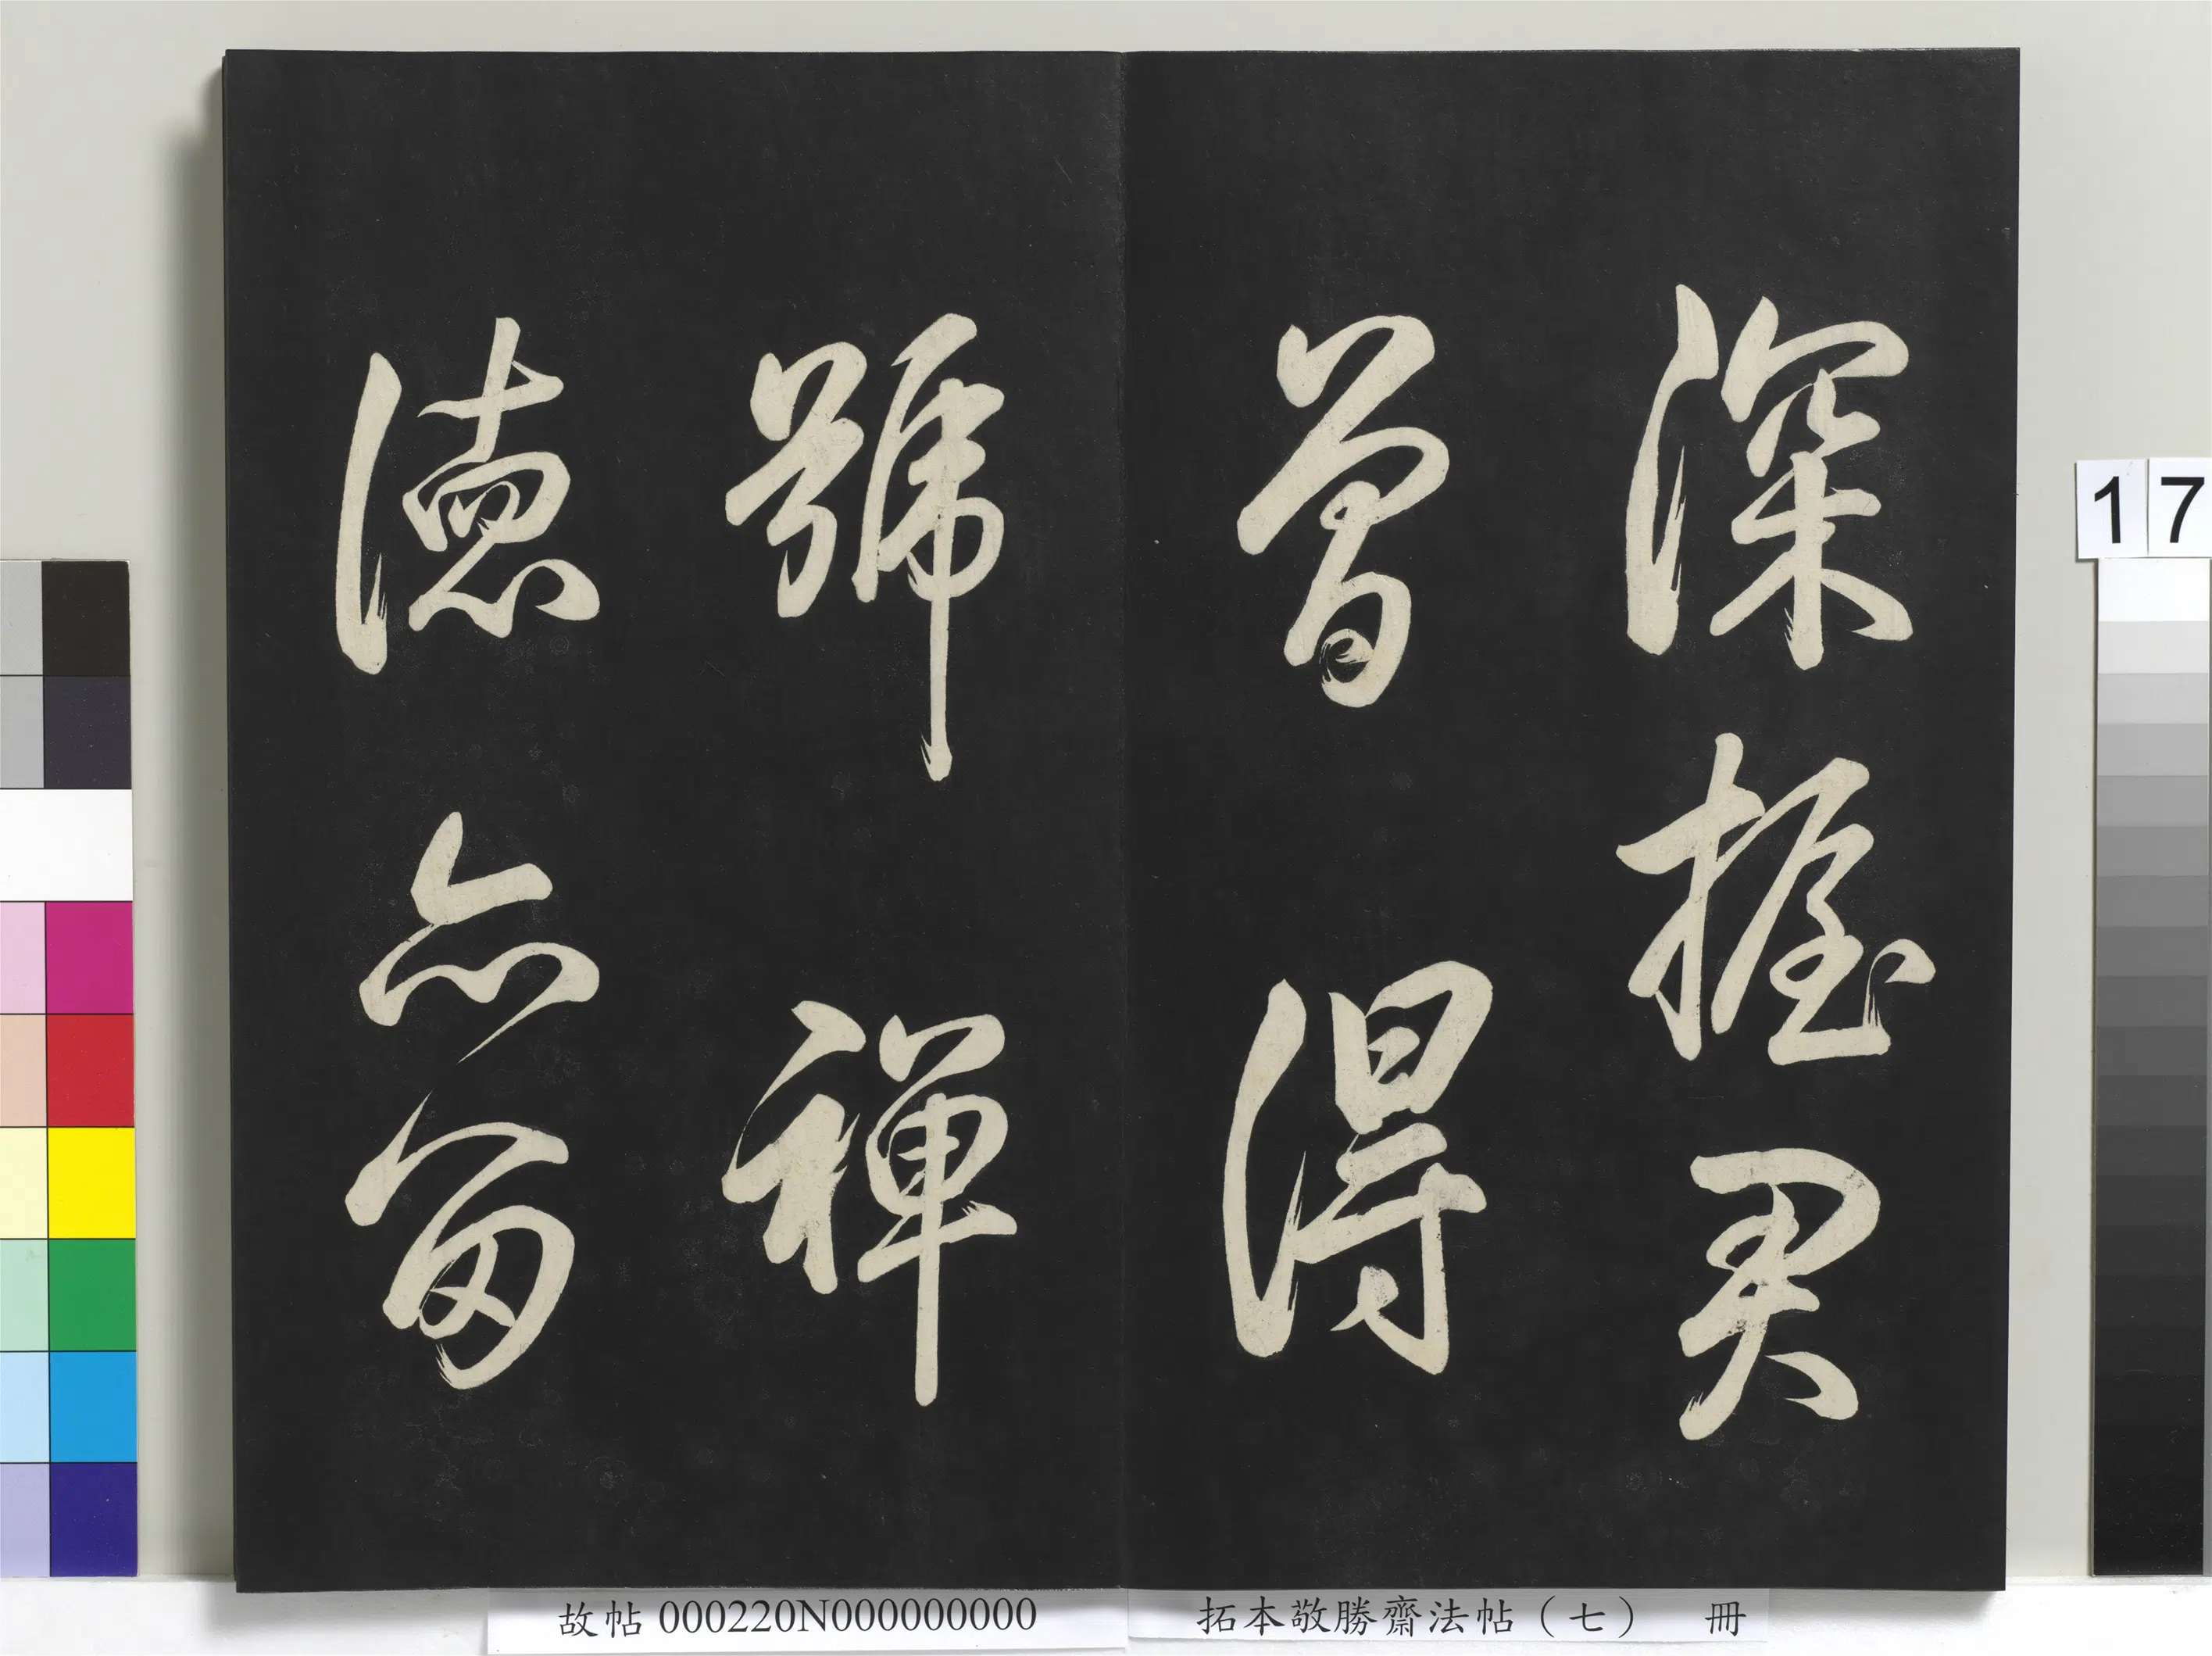 深握
曾得
號禪
德亦
17
故帖 000220N000000000
拓本敬勝齋法帖（七） 冊